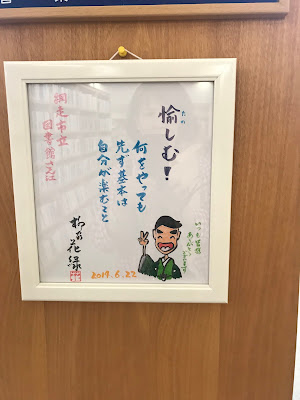 たの
愉しむ!
何をやっても
先ず基本は
自分が楽むこと
網走市立
図書館さん江
柳家花緑
いつも皆様
ありがとうございます
2017.6.22